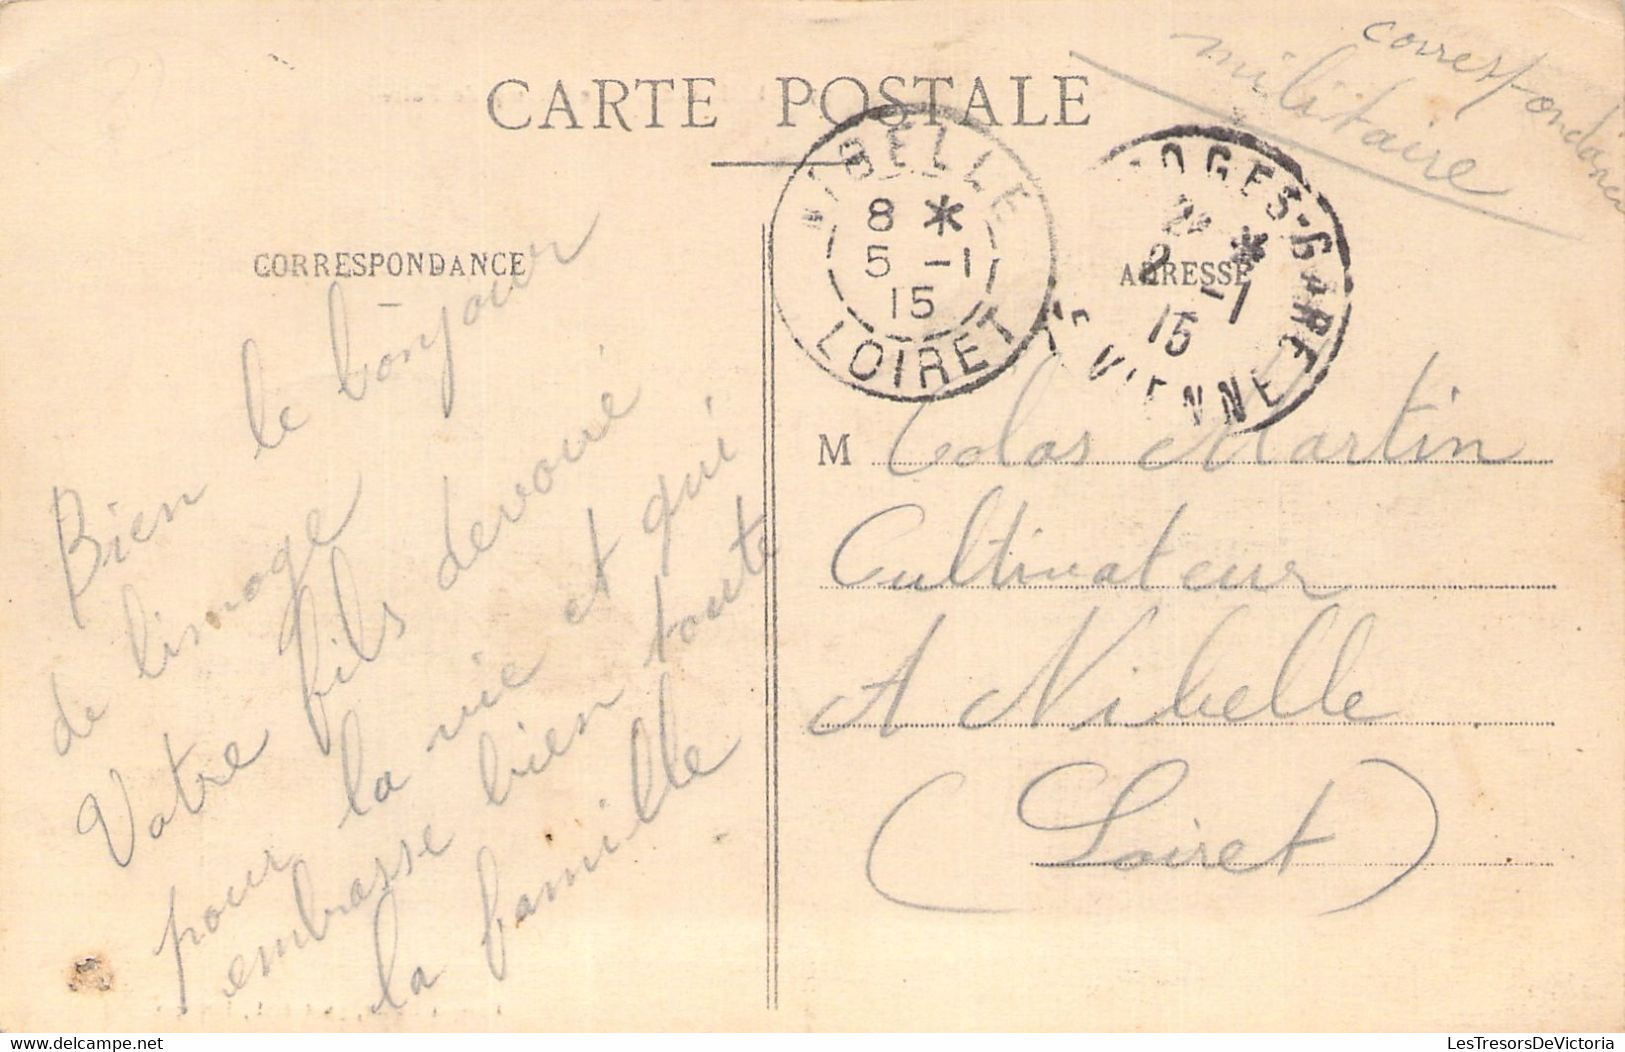 correspondance
militaire
CARTE POSTALE
NIBELLE
8 *
5 -1
15
LOIRET
OGES-GARE
*
2 -1
15
VIENNE
CORRESPONDANCE
ADRESSE
Bien le bonjour
de limoge
Votre fils devoué
pour la vie et qui
embrasse bien toute
la famille
M Colas Martin
Cultivateur
A Nibelle
(Loiret)
LesTresorsDeVictoria
www.delcampe.net